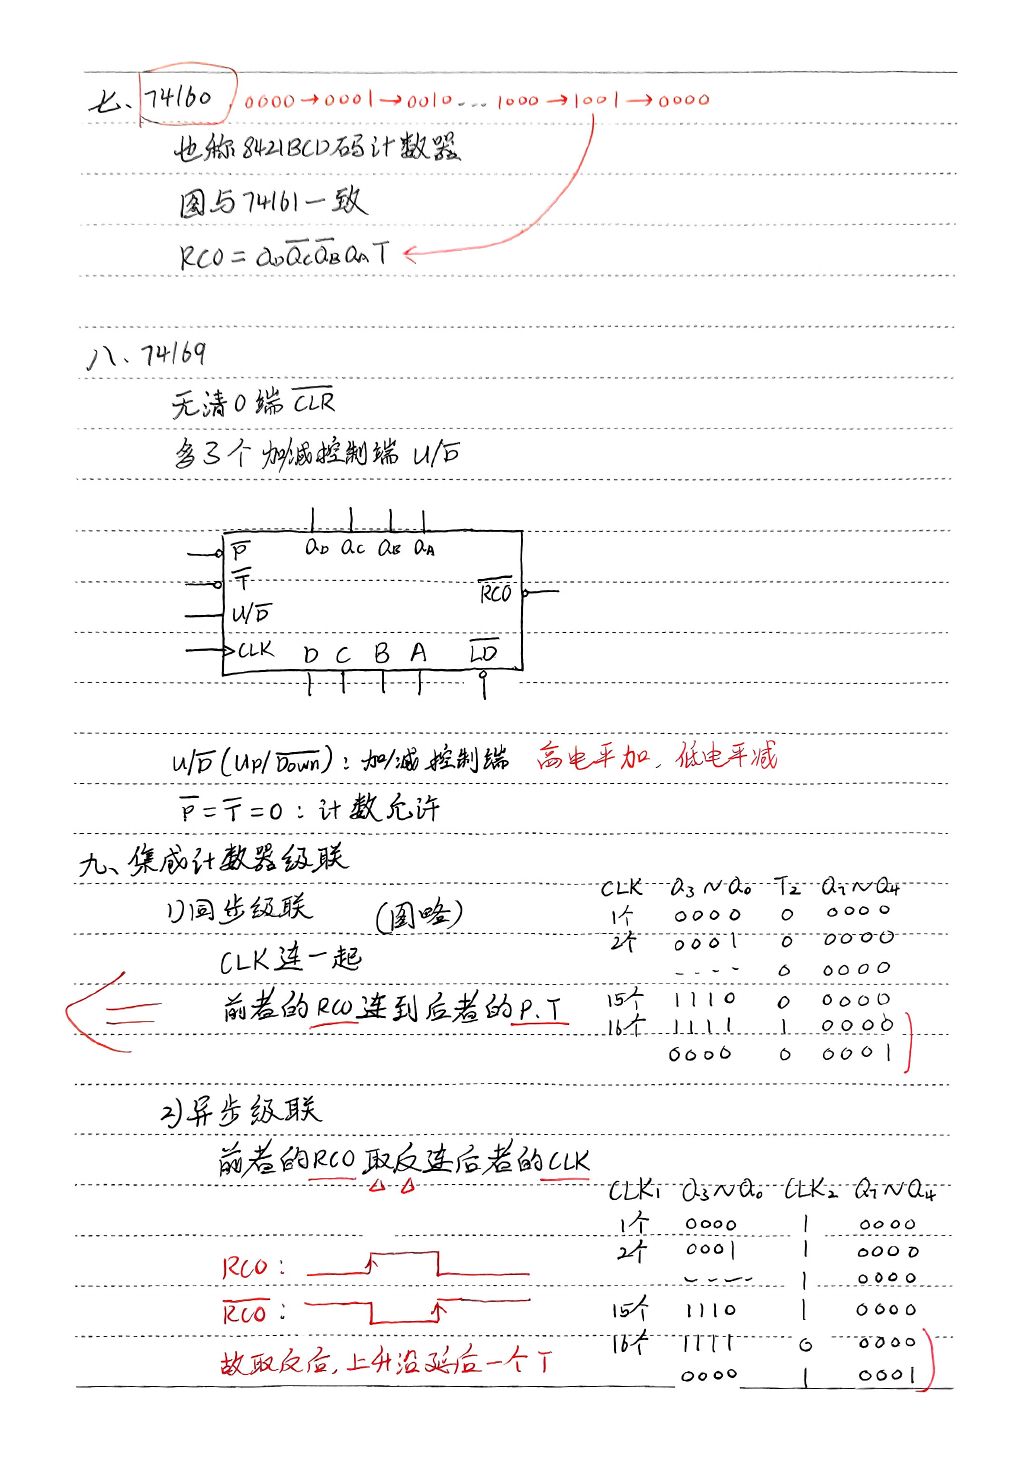 七、74160 0000→0001→0010...1000→1001→0000
也称8421BCD码计数器
图与74161一致
RCO=Q_D Q̅_C Q̅_B Q_A T
八、74169
无清0端 C̅L̅R̅
多了个加减控制端 U/D̅
P̅ Q_D Q_C Q_B Q_A
T̅
R̅C̅O̅
U/D̅
CLK D C B A L̅D̅
U/D̅(Up/D̅o̅w̅n̅):加/减控制端 高电平加,低电平减
P̅=T̅=0:计数允许
九、集成计数器级联
1)同步级联 (图略)
CLK连一起
前者的RCO连到后者的P.T
CLK Q₃~Q₀ T₂ Q₇~Q₄
1个 0000 0 0000
2个 0001 0 0000
---- 0 0000
15个 1110 0 0000
16个 1111 1 0000
0000 0 0001
2)异步级联
前者的RCO取反连后者的CLK
CLK₁ Q₃~Q₀ CLK₂ Q₇~Q₄
1个 0000 1 0000
2个 0001 1 0000
---- 1 0000
15个 1110 1 0000
16个 1111 0 0000
0000 1 0001
RCO:
R̅C̅O̅:
故取反后,上升沿延后一个T